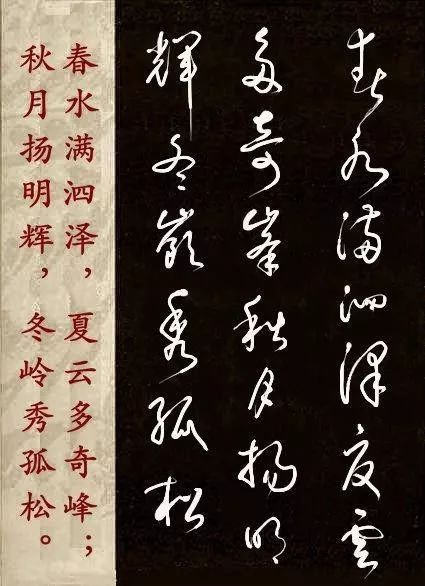 春水满泗泽，夏云多奇峰；
秋月扬明辉，冬岭秀孤松。
春水满泗泽夏云
多奇峰秋月扬明
辉冬岭秀孤松